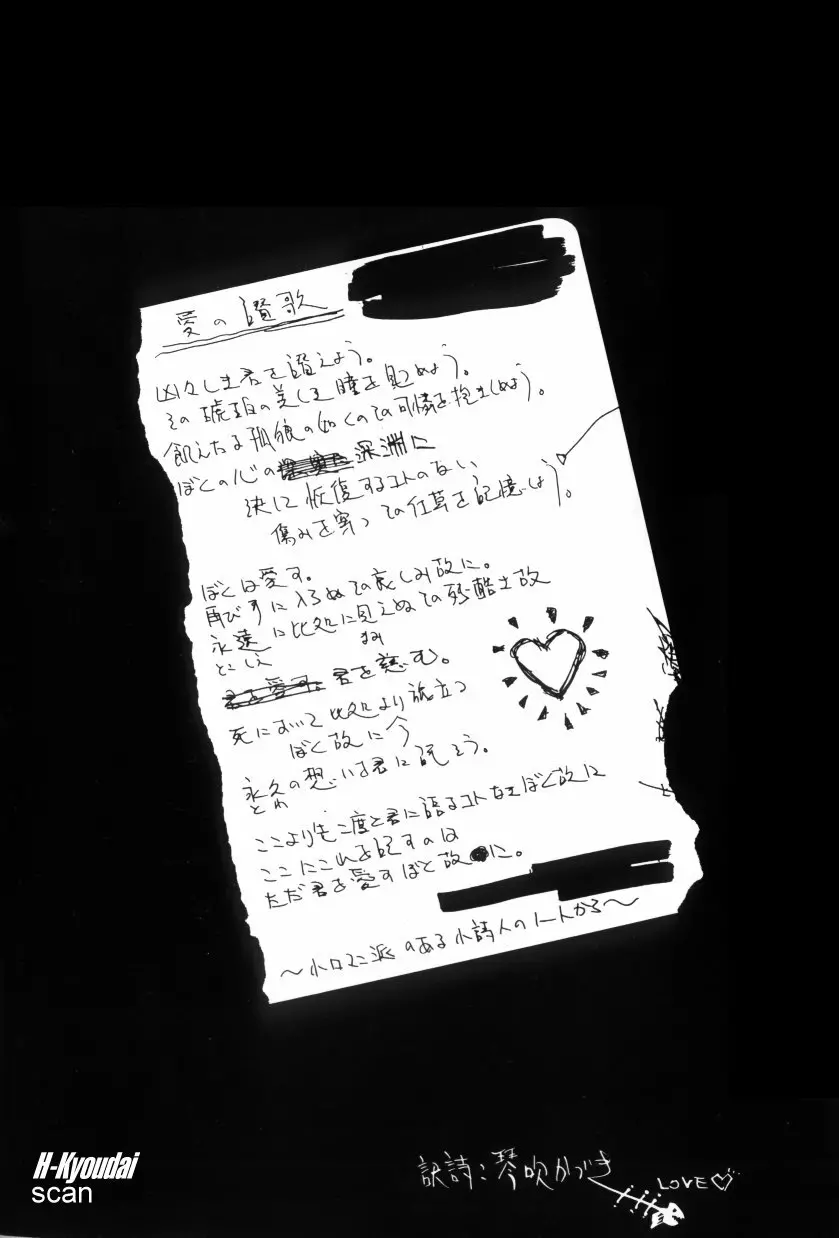 愛の讃歌
凶々しき君を讃えよう。
その琥珀の美しき瞳を見つめよう。
飢えたる孤狼の如くその可憐を抱きしめよう。
ぼくの心の深淵に
決して恢復するコトのない
傷みを穿つその仕草を記憶しよう。
ぼくは愛す。
再び手に入らぬその哀しみ故に。
永遠に此処に見えぬその残酷さ故
とこしえ
まみ
君を愛す。君を慈む。
死において此処より旅立つ
ぼく故に今
永久の想いを君に託そう。
とわ
ここよりも二度と君に語るコトなきぼく故に
ここにこれを記すのは
ただ君を愛すぼく故に。
〜小ロマン派のある小詩人のノートから〜
訳詩：琴吹かづき
LOVE♡
H-Kyoudai
scan